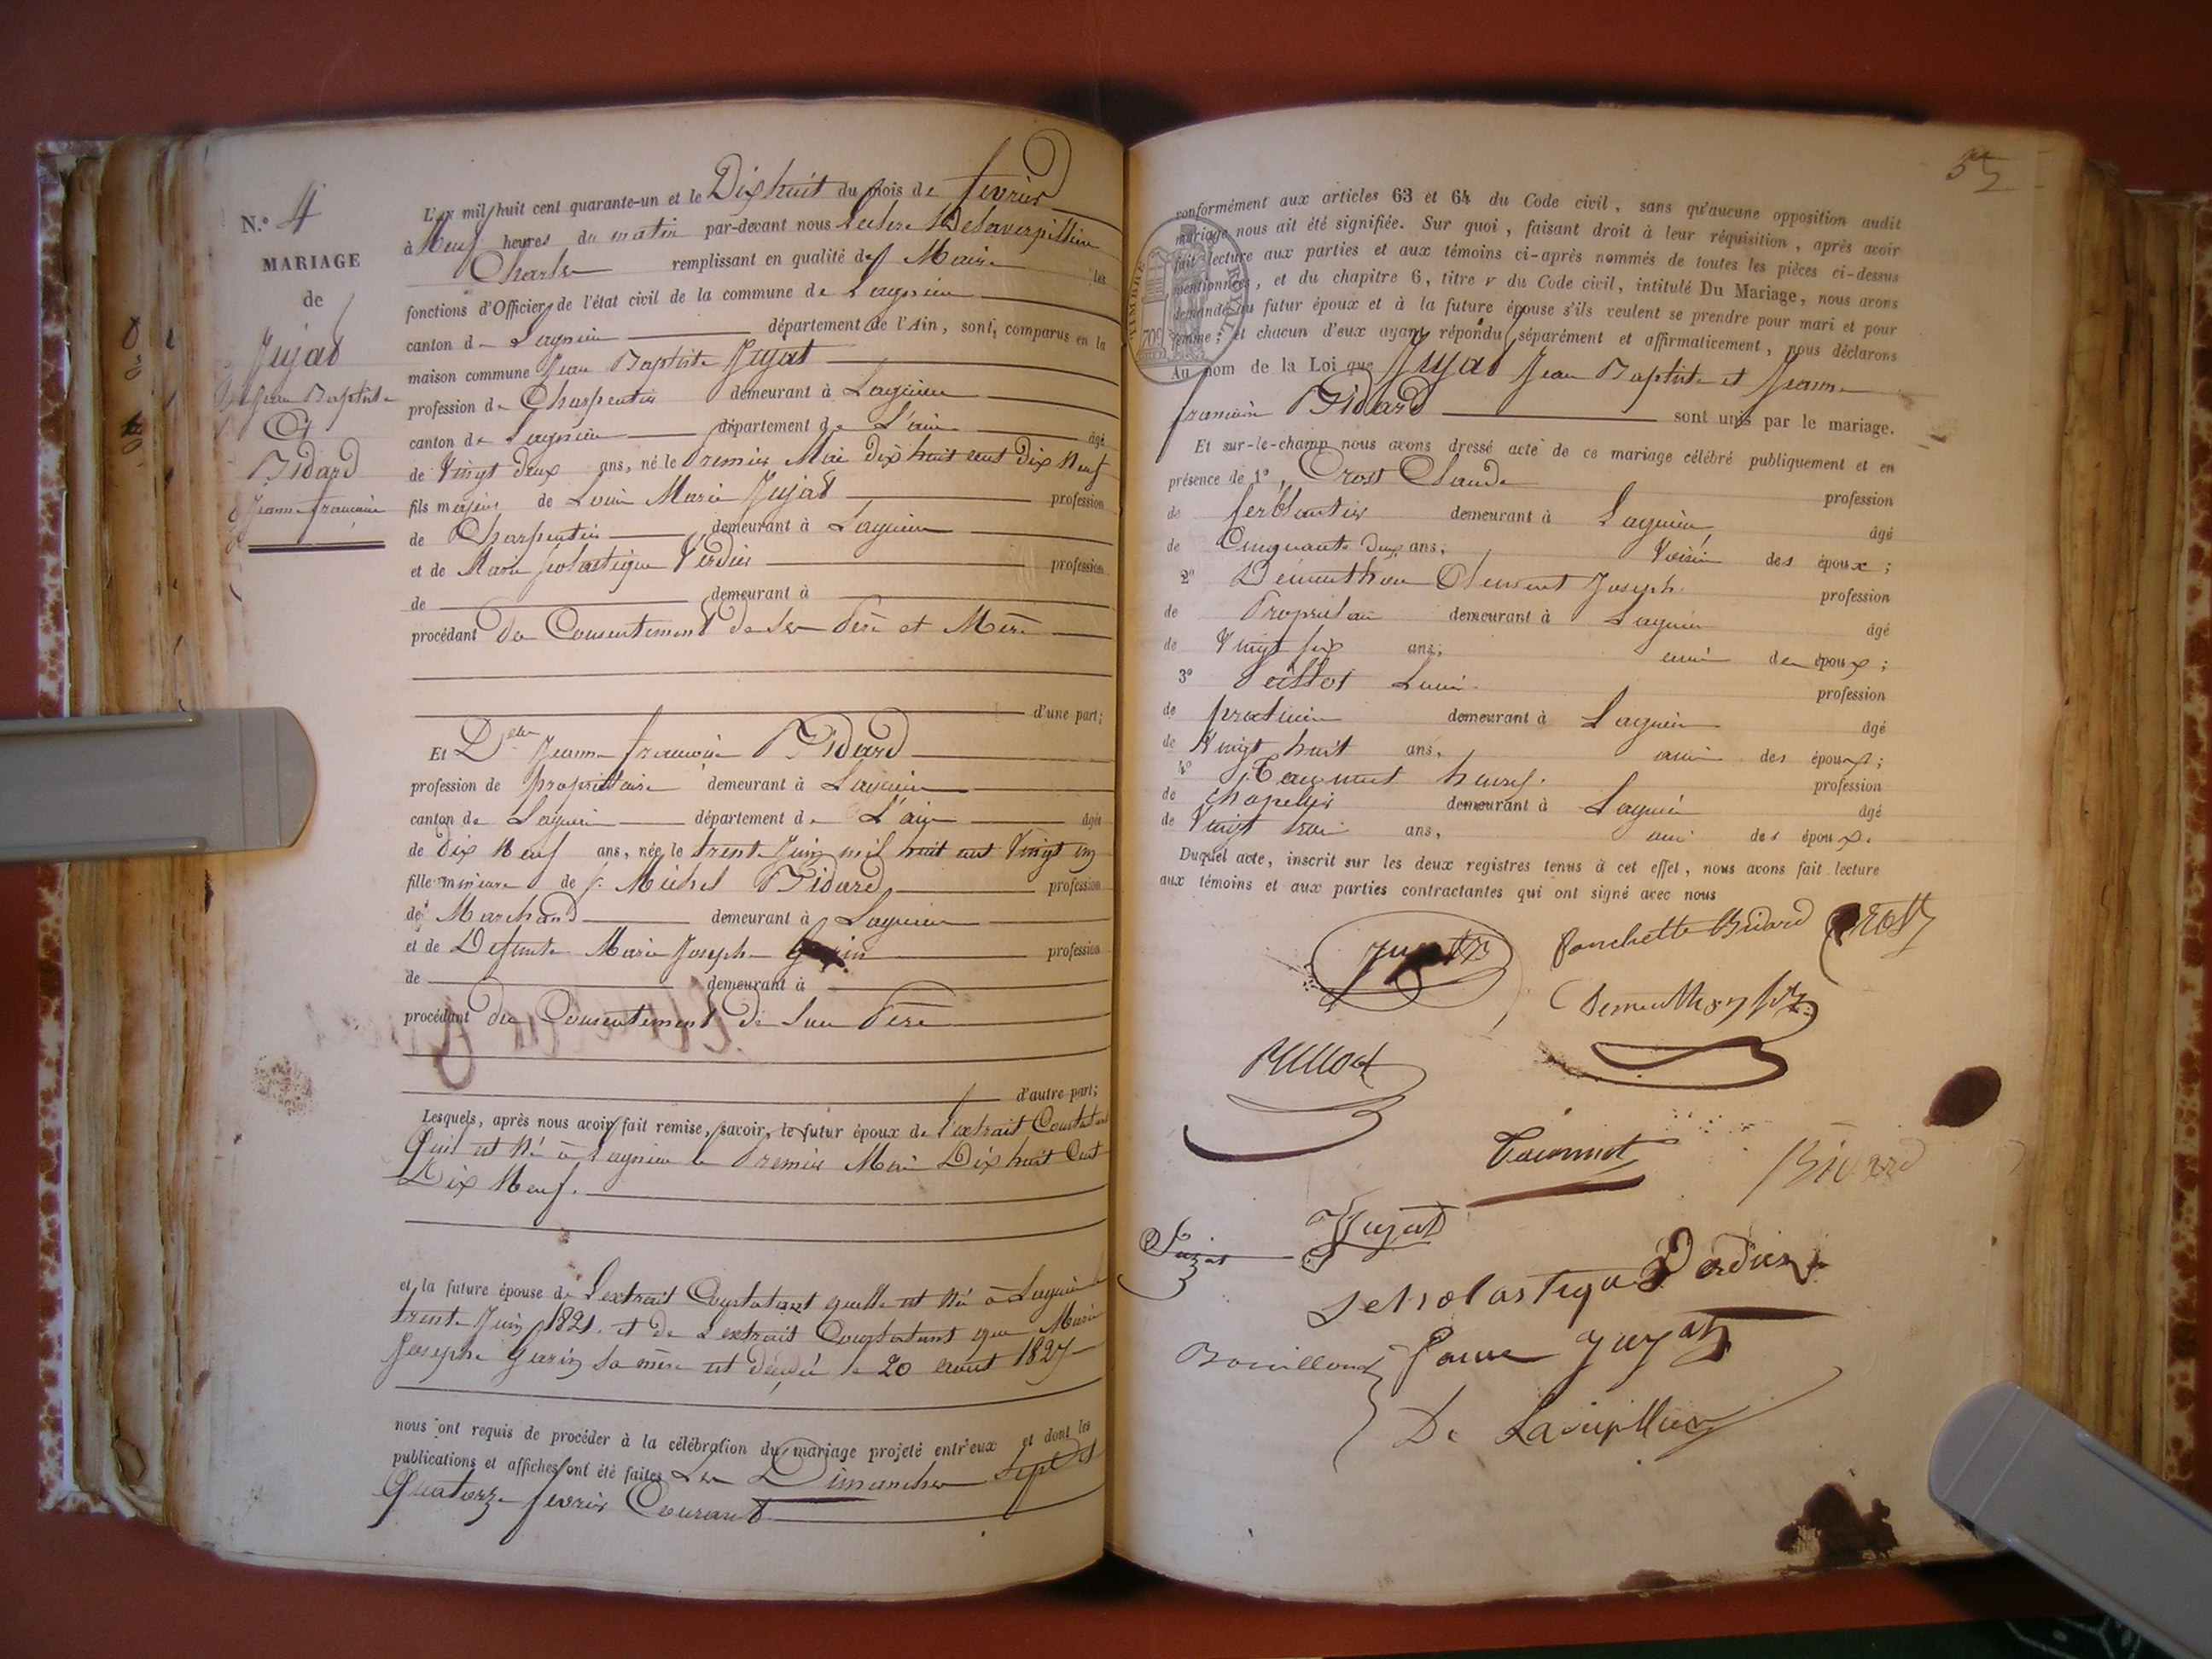 N.° 4
MARIAGE
de
Jujat
Jean Baptiste
Et
Bidard
Jeanne francoise
L'an mil huit cent quarante-un et le Dix huit du mois de fevrier
à Neuf heures du matin par-devant nous
Charles remplissant en qualité de Maire les
fonctions d'Officier de l'état civil de la commune de Lagnieu
canton de Lagnieu département de l'Ain, sont comparus en la
maison commune Jean Baptiste Jujat
profession de Charpentier demeurant à Lagnieu
canton de Lagnieu département de L'ain âgé
de Vingt deux ans, né le Premier Mai dix huit cent Dix Neuf
fils majeur de Louis Marie Jujat profession
de Charpentier demeurant à Lagnieu
et de Marie scolastique Verdier profession
de demeurant à
procédant du Consentement de ses Père et Mère
d'une part;
Et Delle Jeanne francoise Bidard
profession de propriétaire demeurant à Lagnieu
canton de Lagnieu département de L'ain âgée
de dix Neuf ans, née le trente Juin mil huit cent Vingt un
fille mineure de Michel Bidard profession
de Marchand demeurant à Lagnieu
et de Defunte Marie Joseph profession
de demeurant à
procédant du Consentement de son Père
d'autre part;
Lesquels, après nous avoir fait remise, savoir, le futur époux de l'extrait Constatant
Quil est Né à Lagnieu le Premier Mai Dix huit Cent
Dix Neuf.
et la future épouse de L'extrait Constatant quelle est Né à Lagnieu le
trente Juin 1821. et de L'extrait Constatant que Marie
Joseph Garin sa mère est décédé le 20 aout 1827
nous ont requis de procéder à la célébration du mariage projeté entr'eux et dont les
publications et affiches ont été faites Les Dimanches sept et
Quatorze fevrier Courant
conformément aux articles 63 et 64 du Code civil, sans qu'aucune opposition audit
mariage nous ait été signifiée. Sur quoi, faisant droit à leur réquisition, après avoir
fait lecture aux parties et aux témoins ci-après nommés de toutes les pièces ci-dessus
mentionnées, et du chapitre 6, titre V du Code civil, intitulé Du Mariage, nous avons
demandé au futur époux et à la future épouse s'ils veulent se prendre pour mari et pour
femme; et chacun d'eux ayant répondu séparément et affirmativement, nous déclarons
Au nom de la Loi que Jujat Jean Baptiste et Jeanne
francoise Bidard sont unis par le mariage.
Et sur-le-champ nous avons dressé acte de ce mariage célébré publiquement et en
présence de 1° Crost Claude profession
de ferblantier demeurant à Lagnieu âgé
de Cinquante deux ans, Voisin des époux;
2° Clement Joseph profession
de Proprietaire demeurant à Lagnieu âgé
de Vingt six ans; ami des époux;
3° Louis profession
de demeurant à Lagnieu âgé
de Vingt huit ans, ami des époux;
4° profession
de chapelier demeurant à Lagnieu âgé
de Vingt trois ans, ami des époux.
Duquel acte, inscrit sur les deux registres tenus à cet effet, nous avons fait lecture
aux témoins et aux parties contractantes qui ont signé avec nous
fanchette Bidard Crost
Bidard
Jujat
scholastique Verdier
Jujat
TIMBRE ROYAL